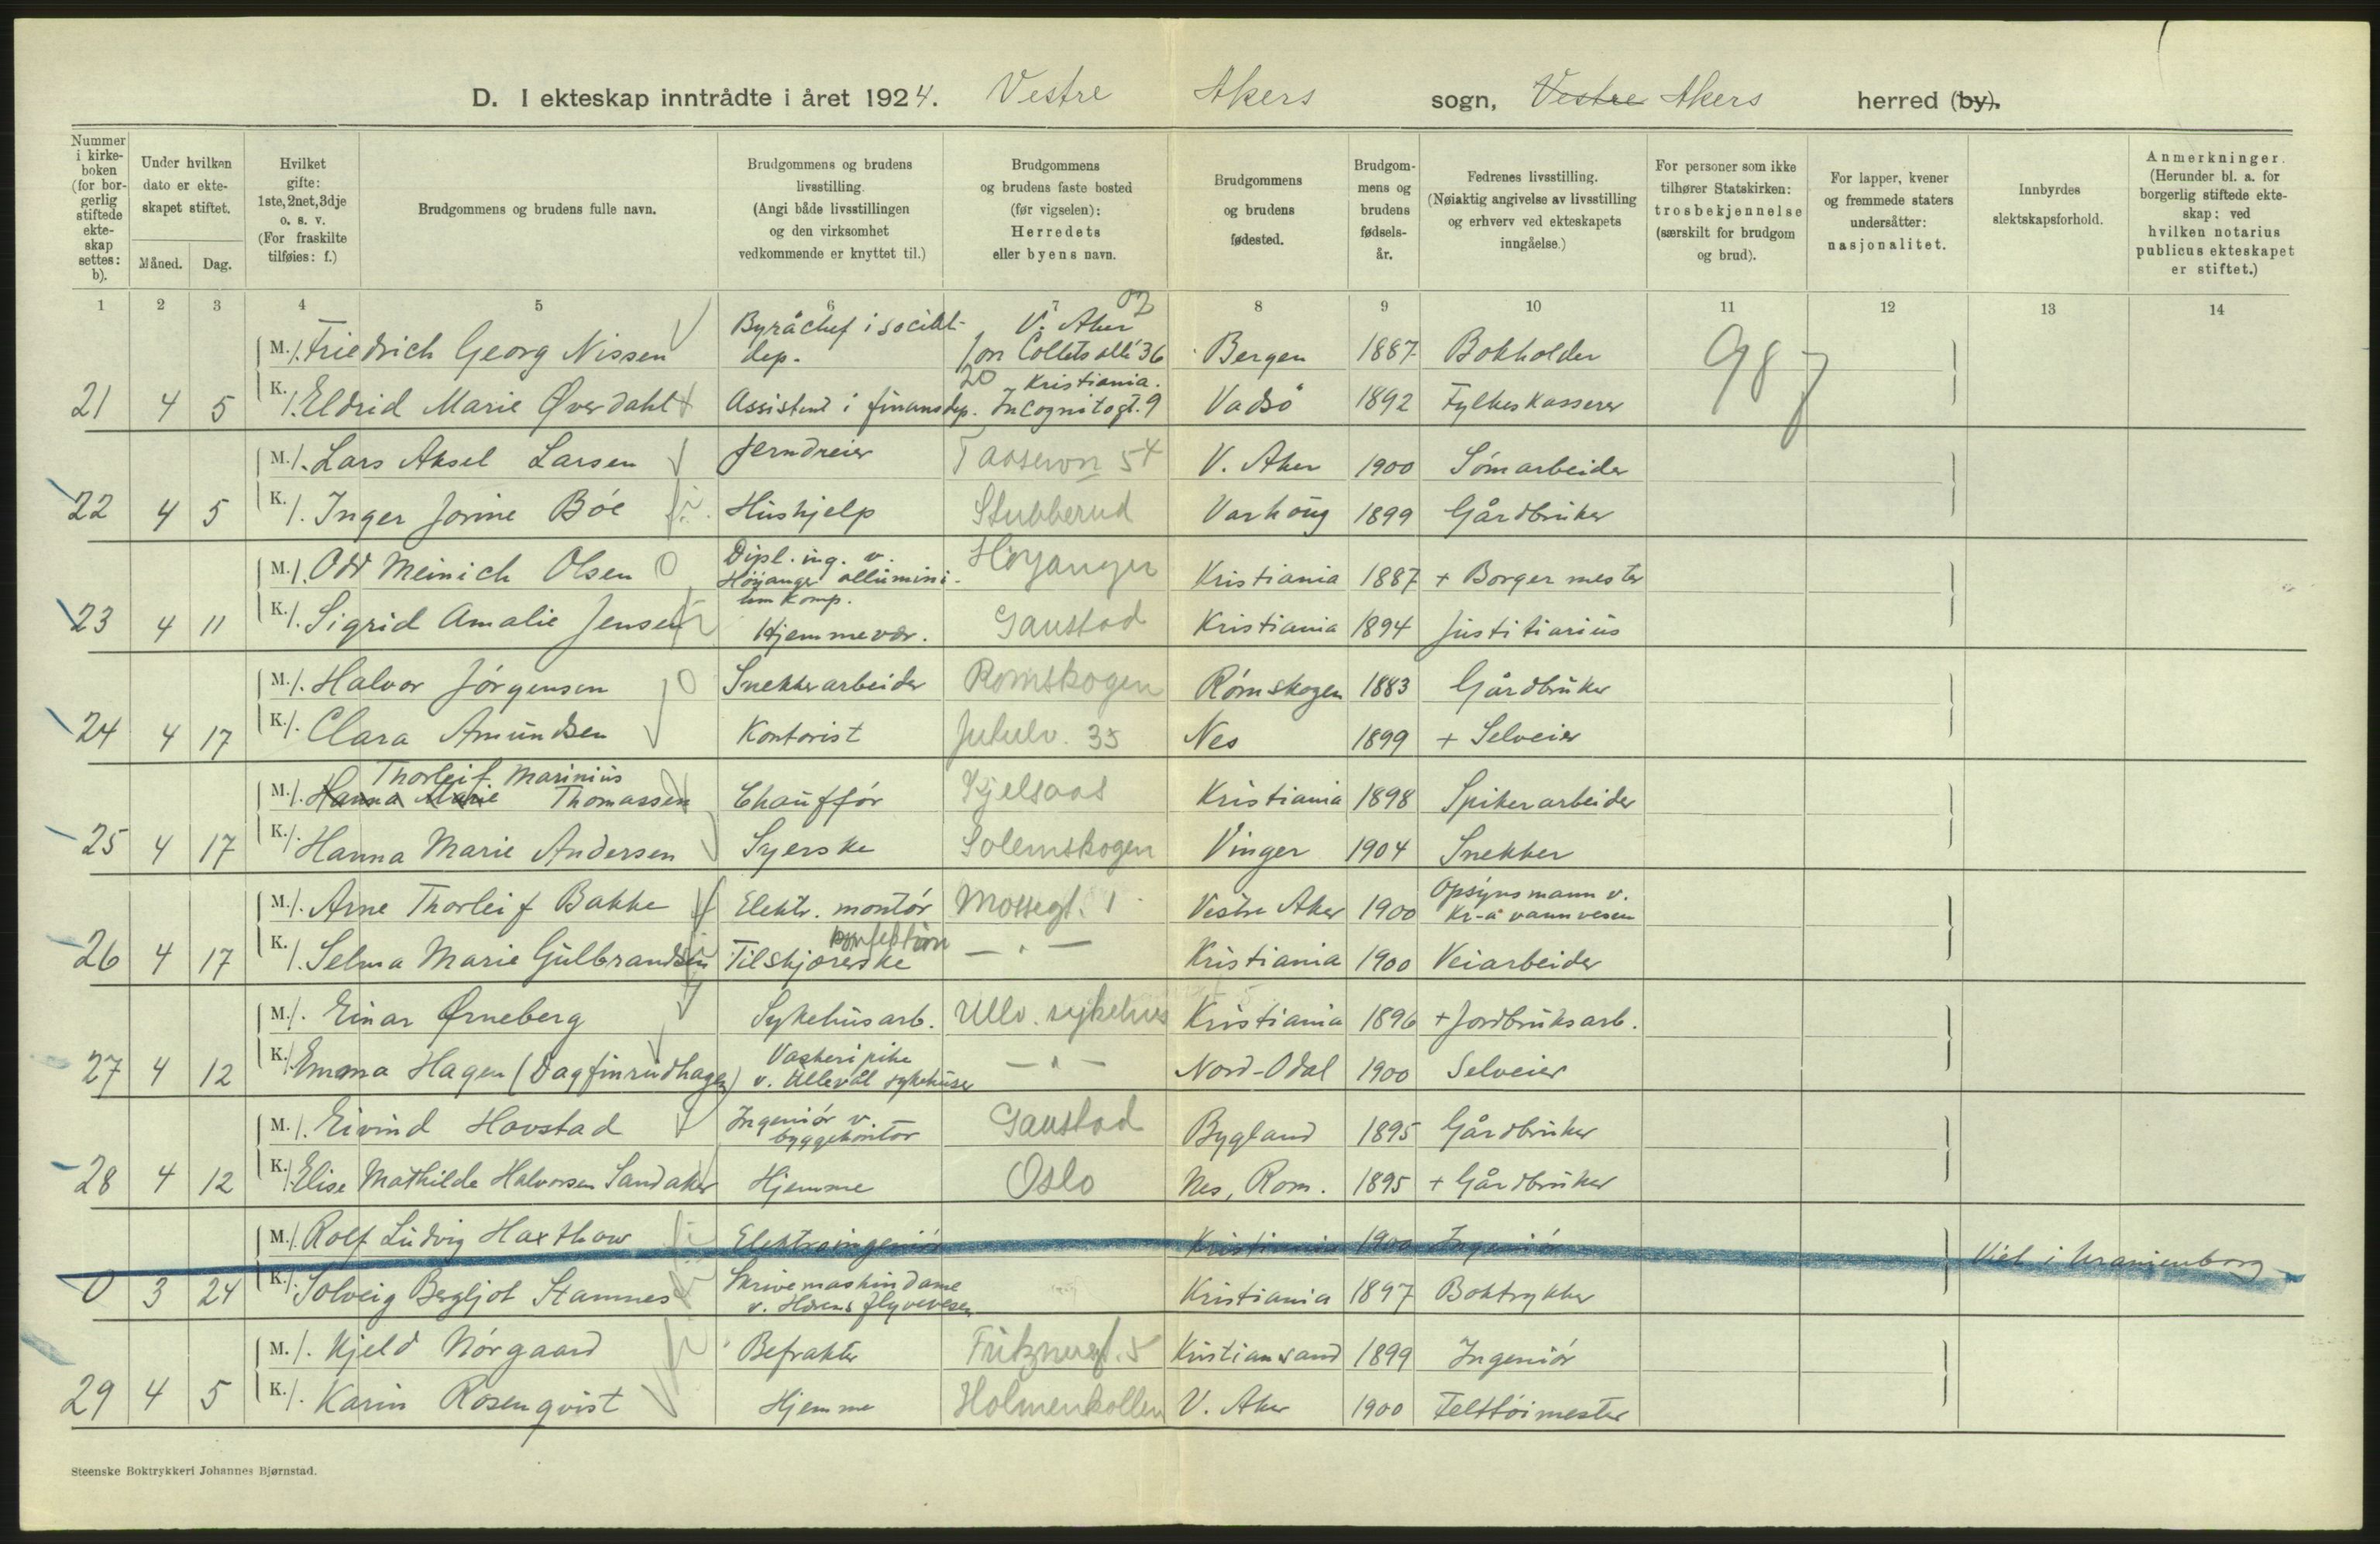 D. I ekteskap inntrådte i året 1924. Vestre Akers sogn, Vestre Akers herred (by).
Nummer i kirkeboken (for borgerlig stiftede ekteskap settes: b).
Under hvilken dato er ekteskapet stiftet.
Måned. Dag.
Hvilket gifte: 1ste, 2net, 3dje o. s. v. (For fraskilte tilføies: f.)
Brudgommens og brudens fulle navn.
Brudgommens og brudens livsstilling. (Angi både livsstillingen og den virksomhet vedkommende er knyttet til.)
Brudgommens og brudens faste bosted (før vigselen): Herredets eller byens navn.
Brudgommens og brudens fødested.
Brudgommens og brudens fødselsår.
Fedrenes livsstilling. (Nøiaktig angivelse av livsstilling og erhverv ved ekteskapets inngåelse.)
For personer som ikke tilhører Statskirken: trosbekjennelse (særskilt for brudgom og brud).
For lapper, kvener og fremmede staters undersåtter: nasjonalitet.
Innbyrdes slektskapsforhold.
Anmerkninger. (Herunder bl. a. for borgerlig stiftede ekteskap: ved hvilken notarius publicus ekteskapet er stiftet.)
1 2 3 4 5 6 7 8 9 10 11 12 13 14
M. 1. Friedrich Georg Nissen Byråchef i socialdep. V. Aker Jon Collets allé 36 Bergen 1887 Bokholder 987
21 4 5 K. 1. Eldrid Marie Øverdahl Assistent i finansdep. 20 Kristiania. Incognitogt. 9 Vadsö 1892 Fylkeskasserer
M. 1. Lars Aksel Larsen Jerndreier Taasenvn 54 V. Aker 1900 Sömarbeider
22 4 5 K. 1. Inger Jorine Böe Hushjelp Stubberud Varhoug 1899 Gårdbruker
M. 1. Odd Meinich Olsen Dipl. ing. v. Höyanger alluminium komp. Höyanger Kristiania 1887 + Borgermester
23 4 11 K. 1. Sigrid Amalie Jensen Hjemmevær. Gaustad Kristiania 1894 Justitiarius
M. 1. Halvor Jörgensen Snekkerarbeider Romskogen Römskogen 1883 Gårdbruker
24 4 17 K. 1. Clara Amundsen Kontorist Jutulv. 35 Nes 1899 + Selveier
Thorleif Marinius
M. 1. Hanna Marie Thomassen Chaufför Kjelsaas Kristiania 1898 Spikerarbeider
25 4 17 K. 1. Hanna Marie Andersen Syerske Solemskogen Vinger 1904 Snekker
M. 1. Arne Thorleif Bakke Elektr. montör Mossegt. 1 Vestre Aker 1900 Opsynsmann v. Kr-a vannvesen
26 4 17 K. 1. Selma Marie Gulbrandsen Tilskjærerske konfektion — " — Kristiania 1900 Veiarbeider
M. 1. Einar Ørneberg Sykehusarb. Ullv. sykehus Kristiania 1896 + Jordbruksarb.
27 4 12 K. 1. Emma Hagen (Dagfinrudhagen) Vaskeripike v. Ullevål sykehuser — " — Nord-Odal 1900 Selveier
M. 1. Eivind Hovstad Ingeniör v. byggekontor Gaustad Bygland 1895 Gårdbruker
28 4 12 K. 1. Elise Mathilde Halvorsen Sandaker Hjemme Oslo Nes, Rom. 1895 + Gårdbruker
M. 1. Rolf Ludvig Haxthow Elektroingeniör Kristiania 1900 Ingeniör Viet i Uranienborg
0 3 24 K. 1. Solveig Bergljot Stamnes Skrivemaskindame v. Hærens flyvevesen Kristiania 1897 Boktrykker
M. 1. Kjeld Nörgaard Befrakter Fritznersgt. 5 Kristiansand 1899 Ingeniör
29 4 5 K. 1. Karin Rosenqvist Hjemme Holmenkollen V. Aker 1900 Felttöimester
Steenske Boktrykkeri Johannes Bjørnstad.